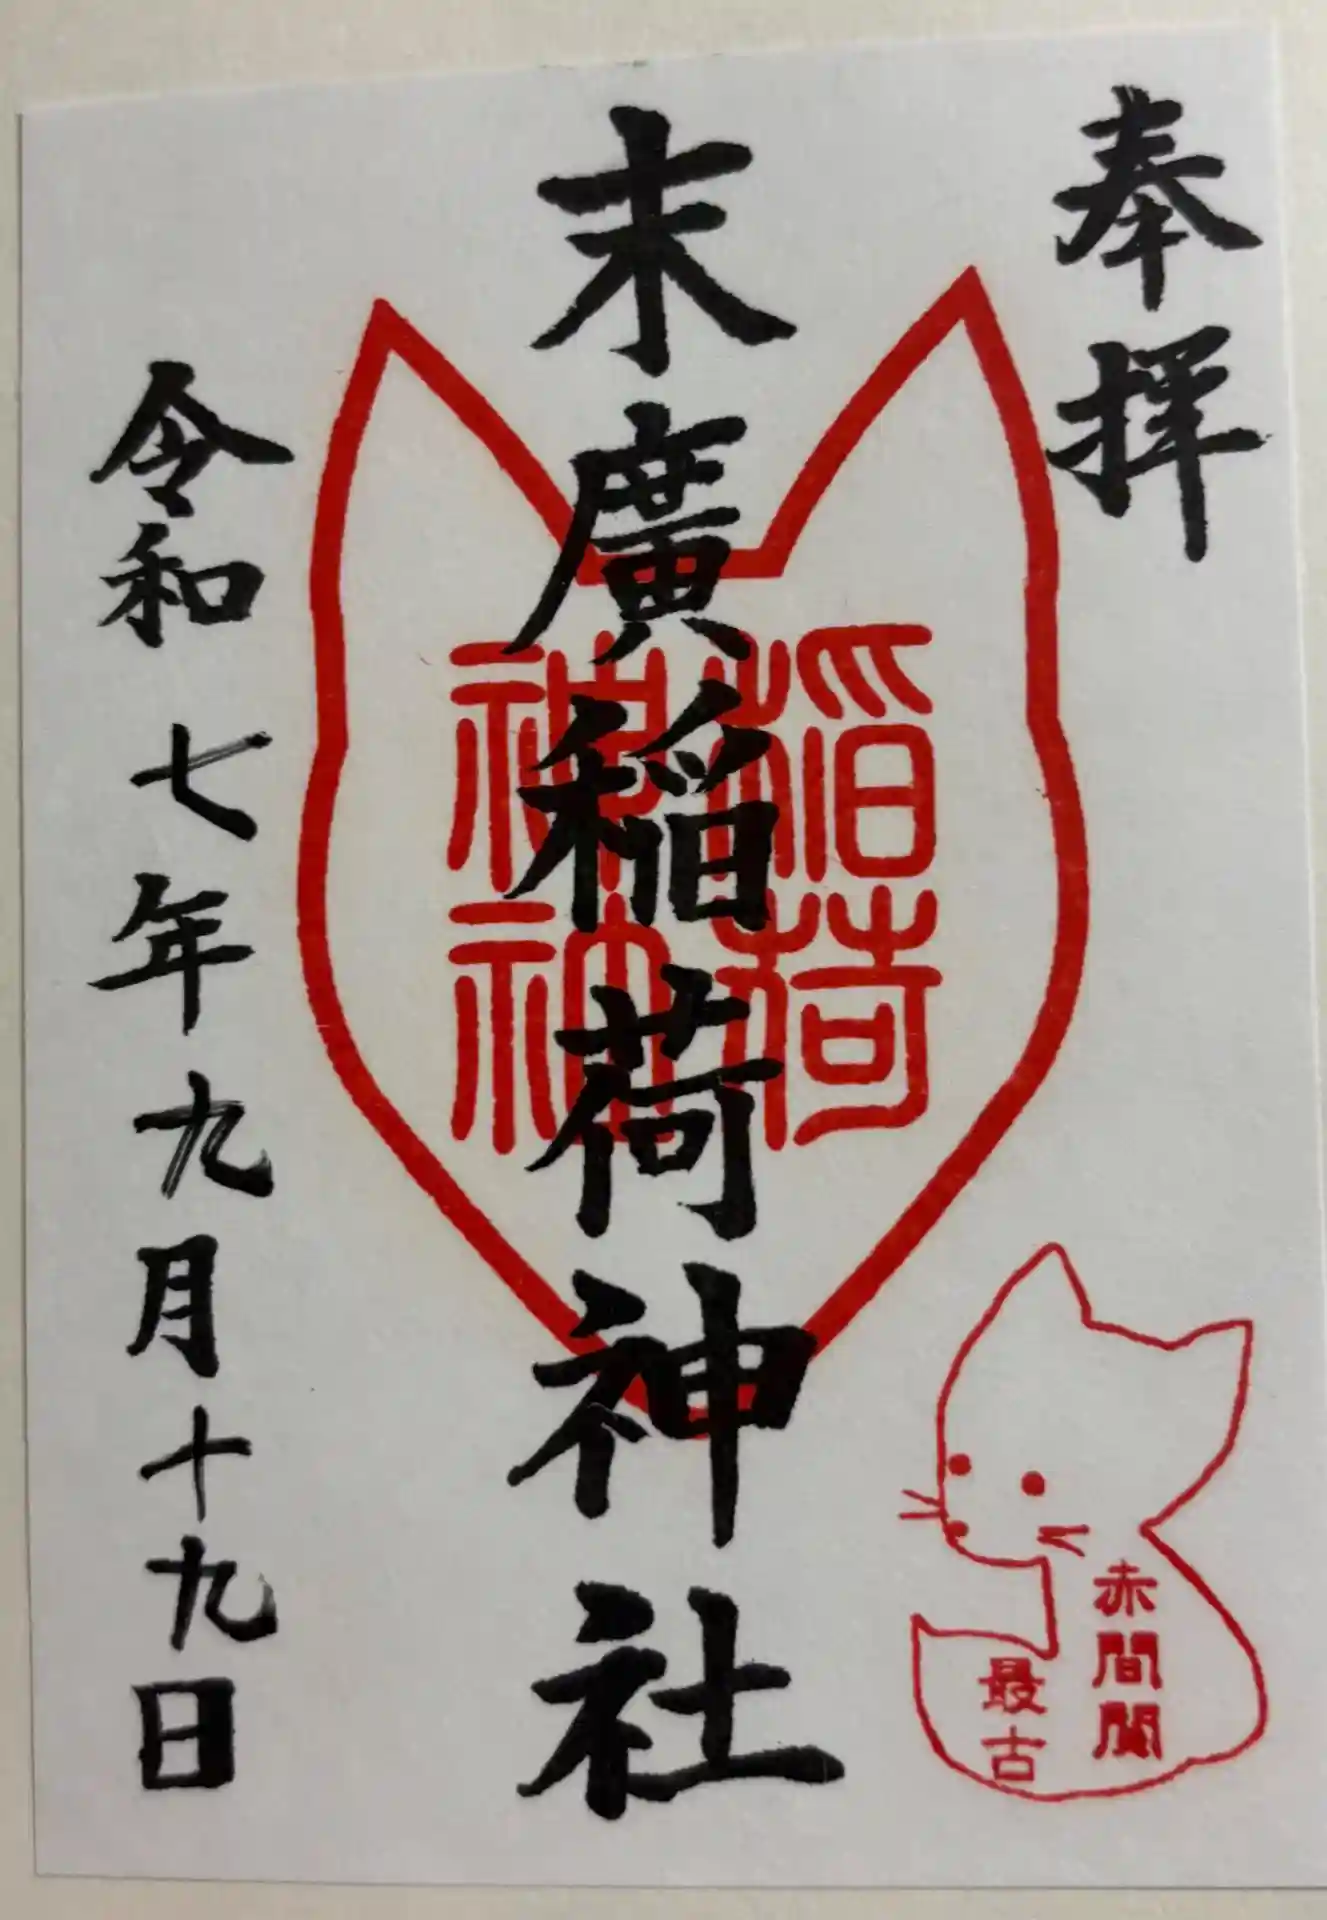 奉拝
末廣稲荷神社
稲荷
神神
赤間関
最古
令和七年九月十九日